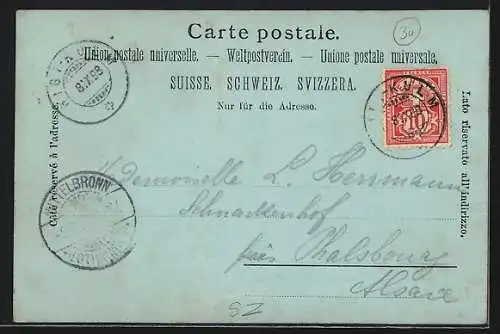 Carte postale.
30
Union postale universelle. — Weltpostverein. — Unione postale universale.
SUISSE. SCHWEIZ. SVIZZERA.
Nur für die Adresse.
Côté réservé à l'adresse.
Lato riservato all'indirizzo.
8.X.98
KULM
10
Mademoiselle L. Herrmann
Schnackenhof
près Phalsbourg
Alsace
SZ